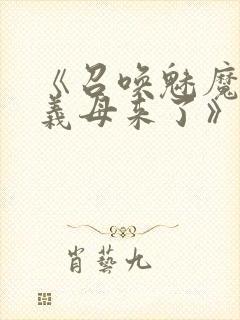 《召唤魅魔
義母来了》
肖藝九